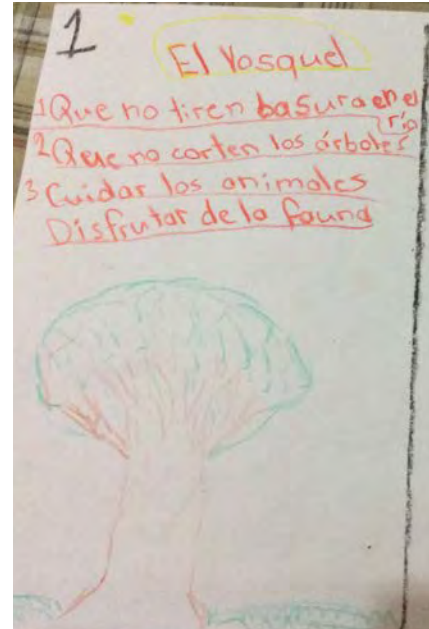 1
El Vosquel
1 Que no tiren basura en el río
2 Que no corten los árboles
3 Cuidar los animales
Disfrutar de la fauna